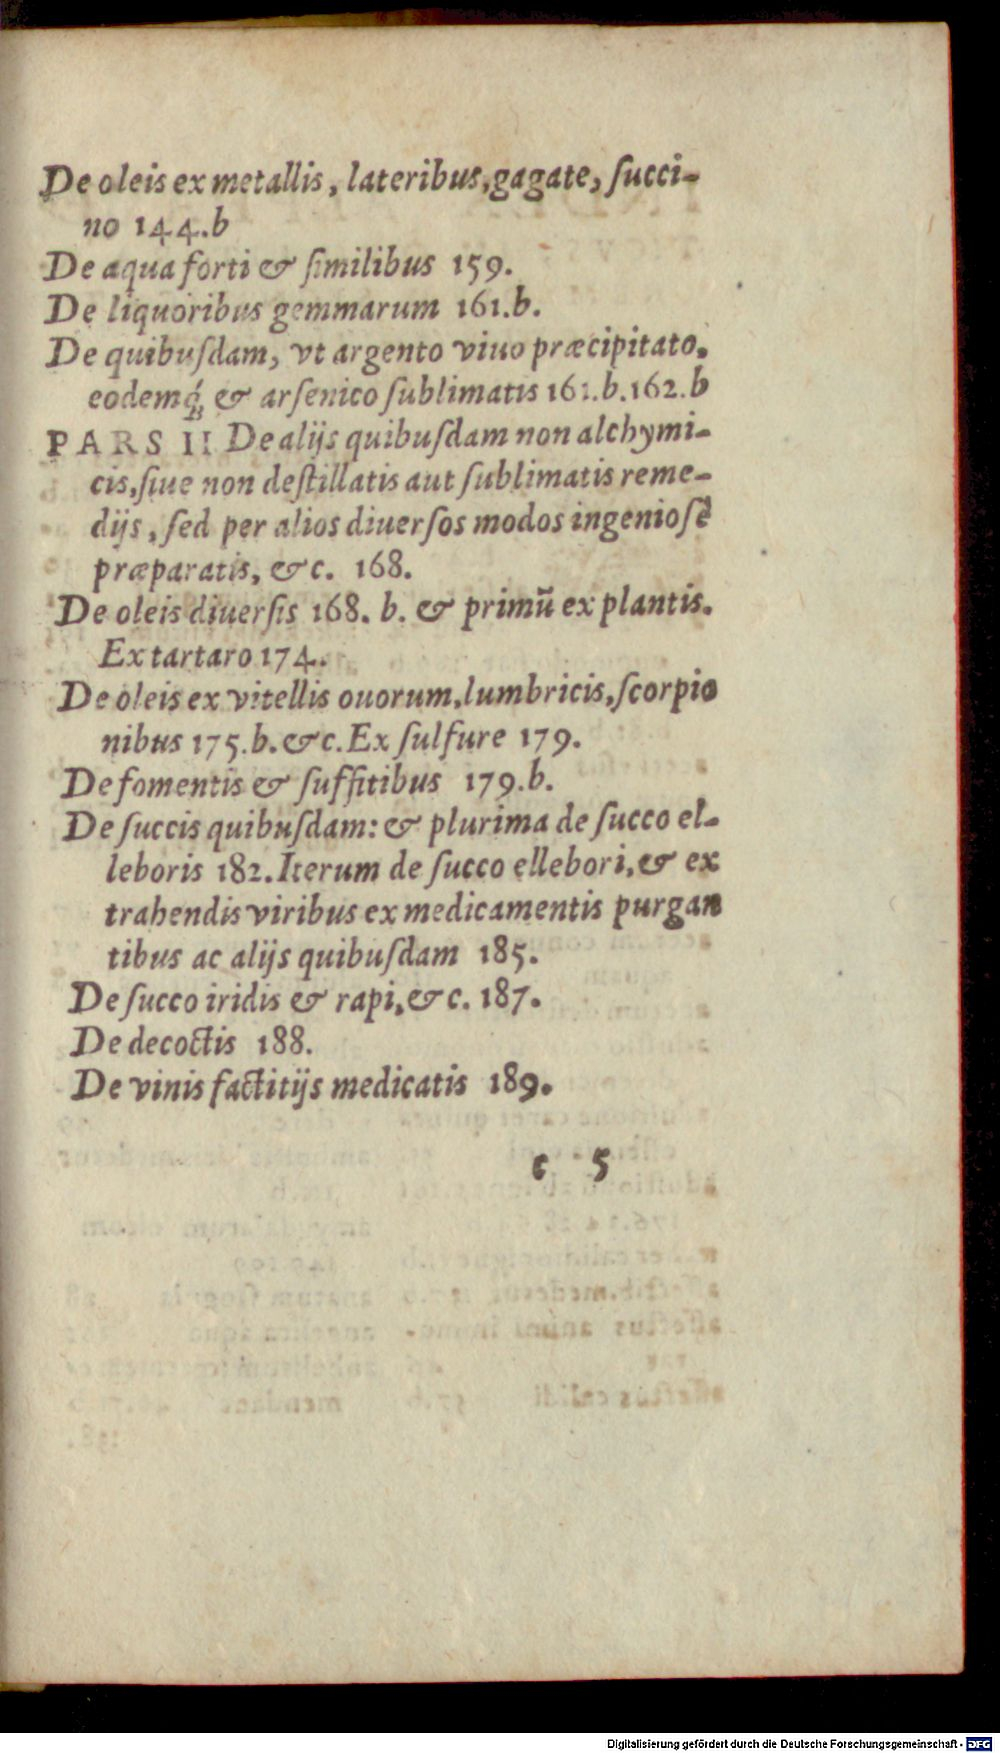 De oleis ex metallis, lateribus, gagate, ſucci-
no 144.b
De aqua forti & ſimilibus 159.
De liquoribus gemmarum 161.b.
De quibuſdam, vt argento viuo præcipitato,
eodemq́; & arſenico ſublimatis 161.b.162.b
PARS II De alijs quibuſdam non alchymi-
cis, ſiue non deſtillatis aut ſublimatis reme-
dijs, ſed per alios diuerſos modos ingenioſè
præparatis, &c. 168.
De oleis diuerſis 168. b. & primū ex plantis.
Ex tartaro 174.
De oleis ex vitellis ouorum, lumbricis, ſcorpio
nibus 175.b. &c. Ex ſulfure 179.
De fomentis & ſuffitibus 179.b.
De ſuccis quibuſdam: & plurima de ſucco el-
leboris 182. Iterum de ſucco ellebori, & ex
trahendis viribus ex medicamentis purgan
tibus ac alijs quibuſdam 185.
De ſucco iridis & rapi, &c. 187.
De decoctis 188.
De vinis factitijs medicatis 189.
c 5
Digitalisierung gefördert durch die Deutsche Forschungsgemeinschaft - DFG